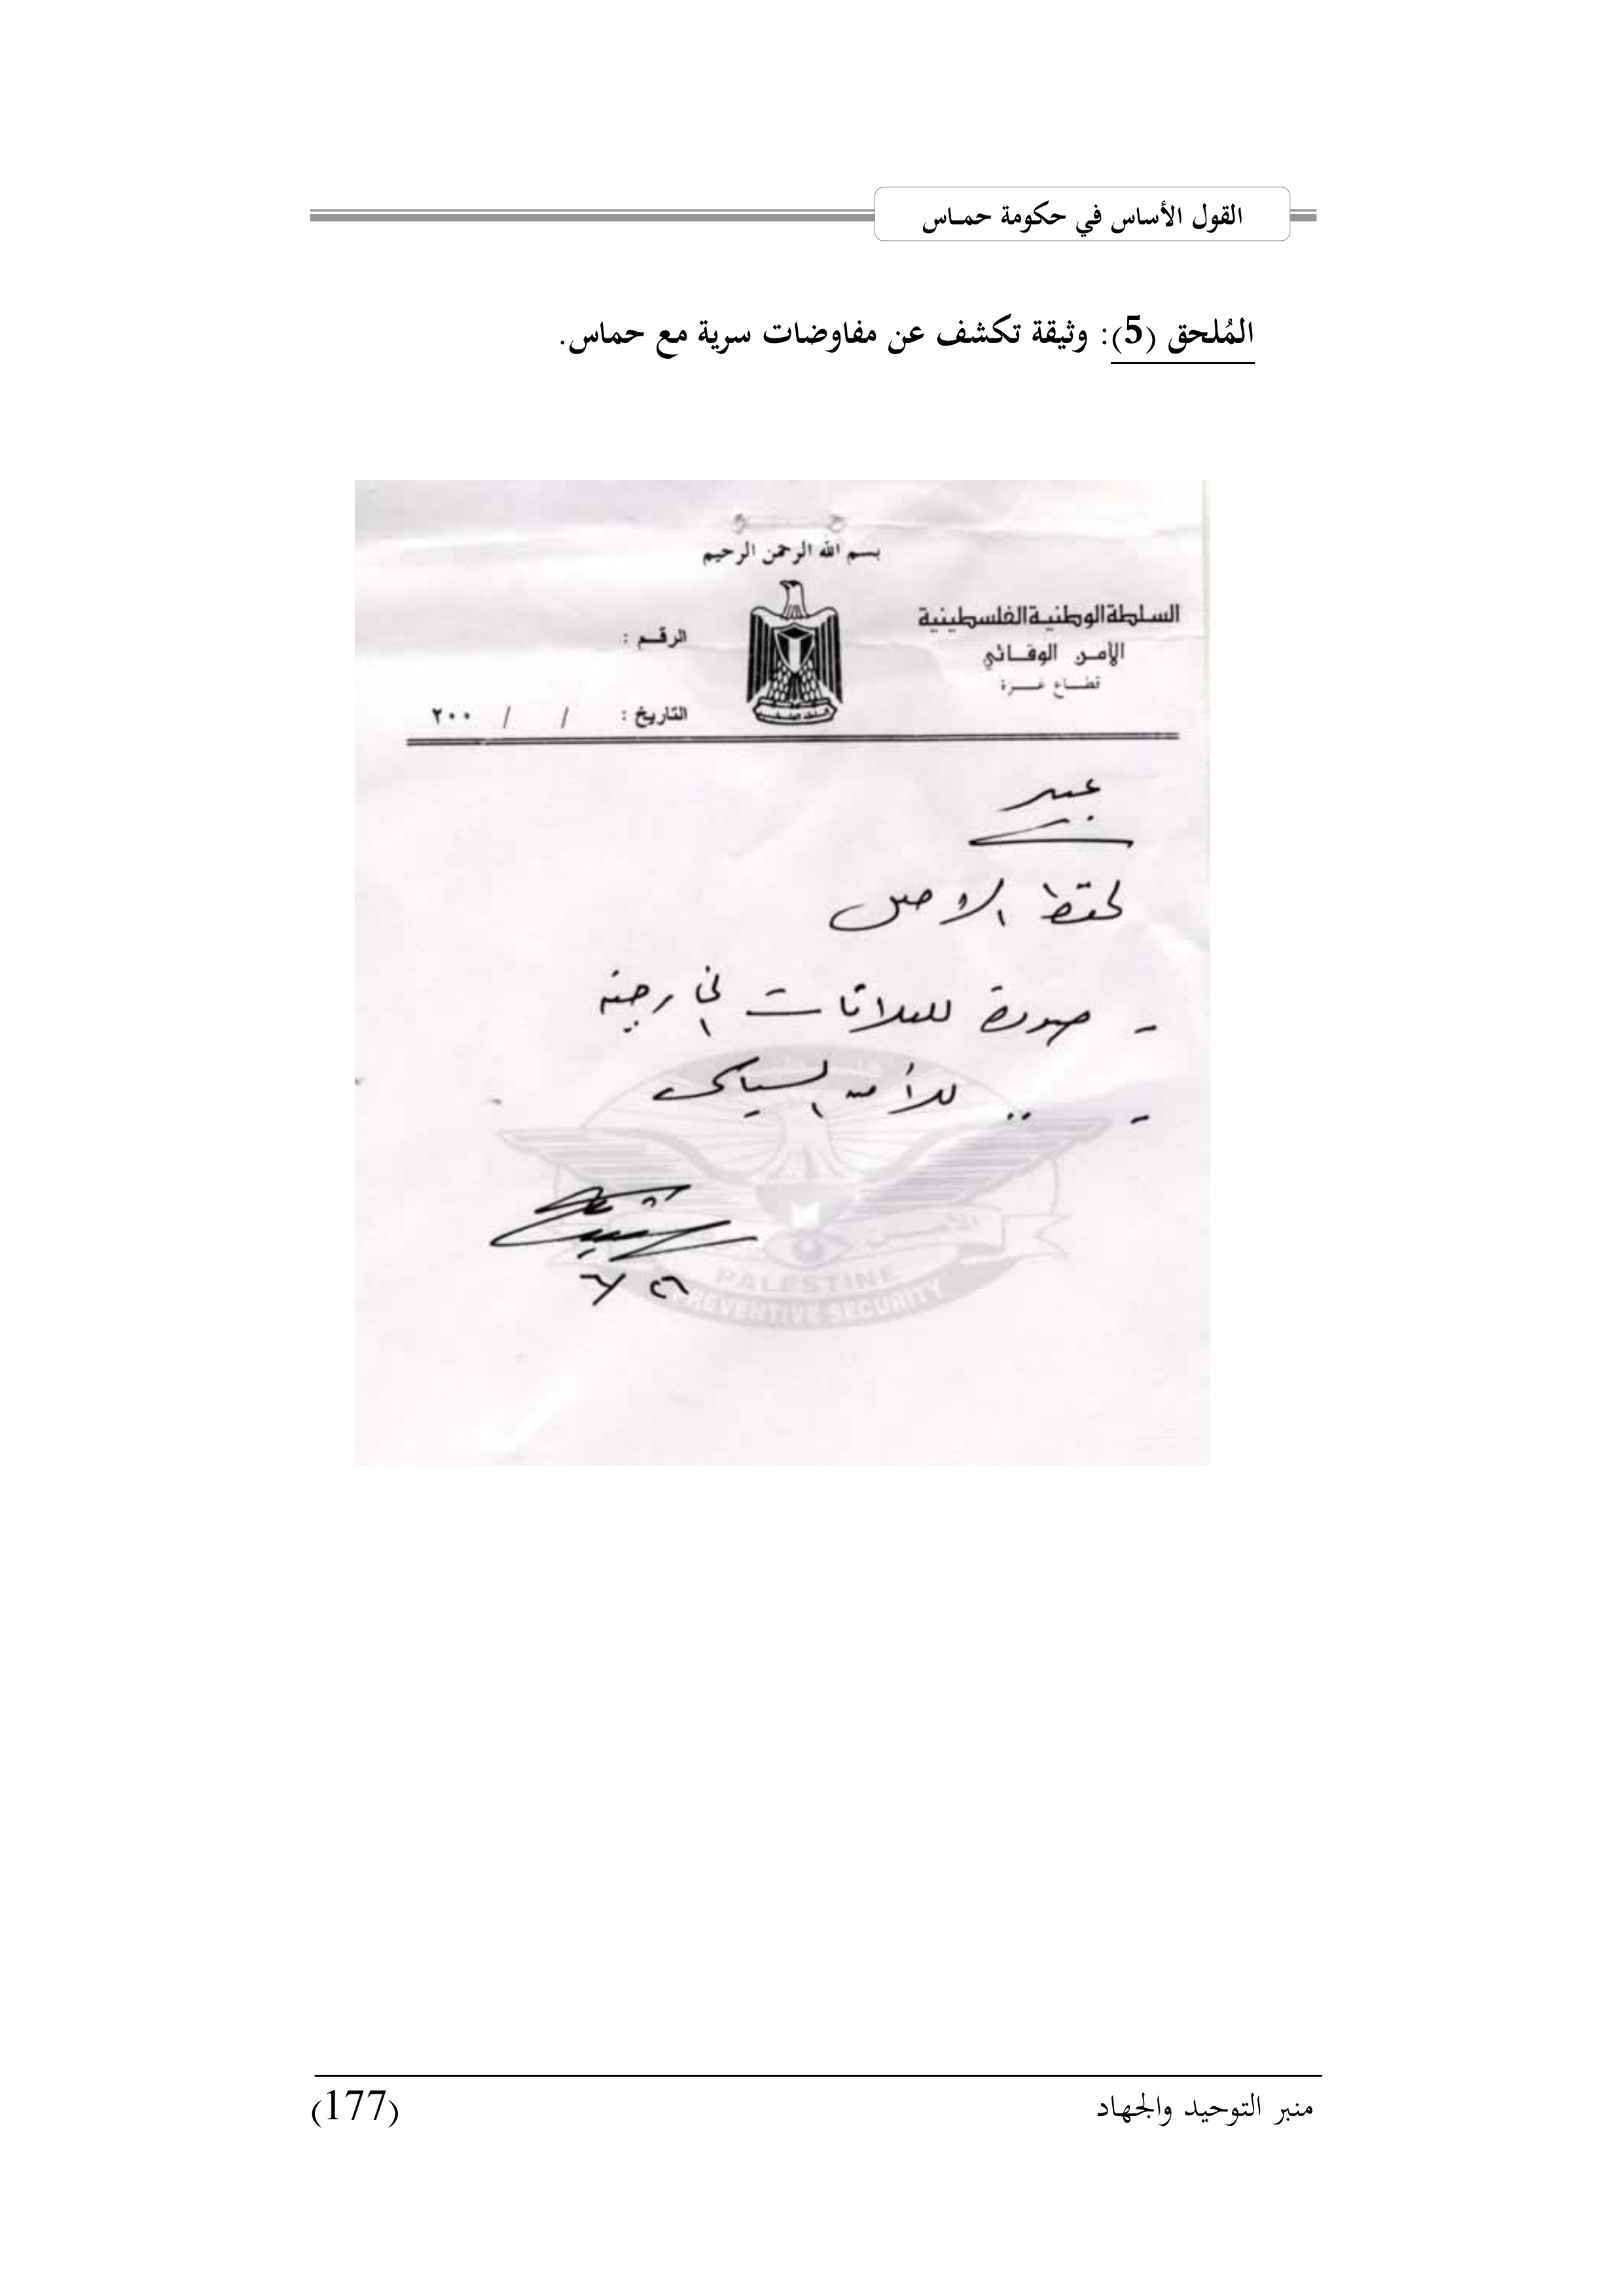 القول الأساس في حكومة حمـاس
المُلحق (5): وثيقة تكشف عن مفاوضات سرية مع حماس.
بسم الله الرحمن الرحيم
السلطة الوطنية الفلسطينية
الأمـن الوقـائي
قطـاع غـزة
الرقـم :
التاريخ : / / ٢٠٠
عبير
لحفظ الاصل
- صورة للعلاقات الخارجية
- .. للأمن السياسي
٢٦/٦
PALESTINE
PREVENTIVE SECURITY
منبر التوحيد والجهاد
(177)